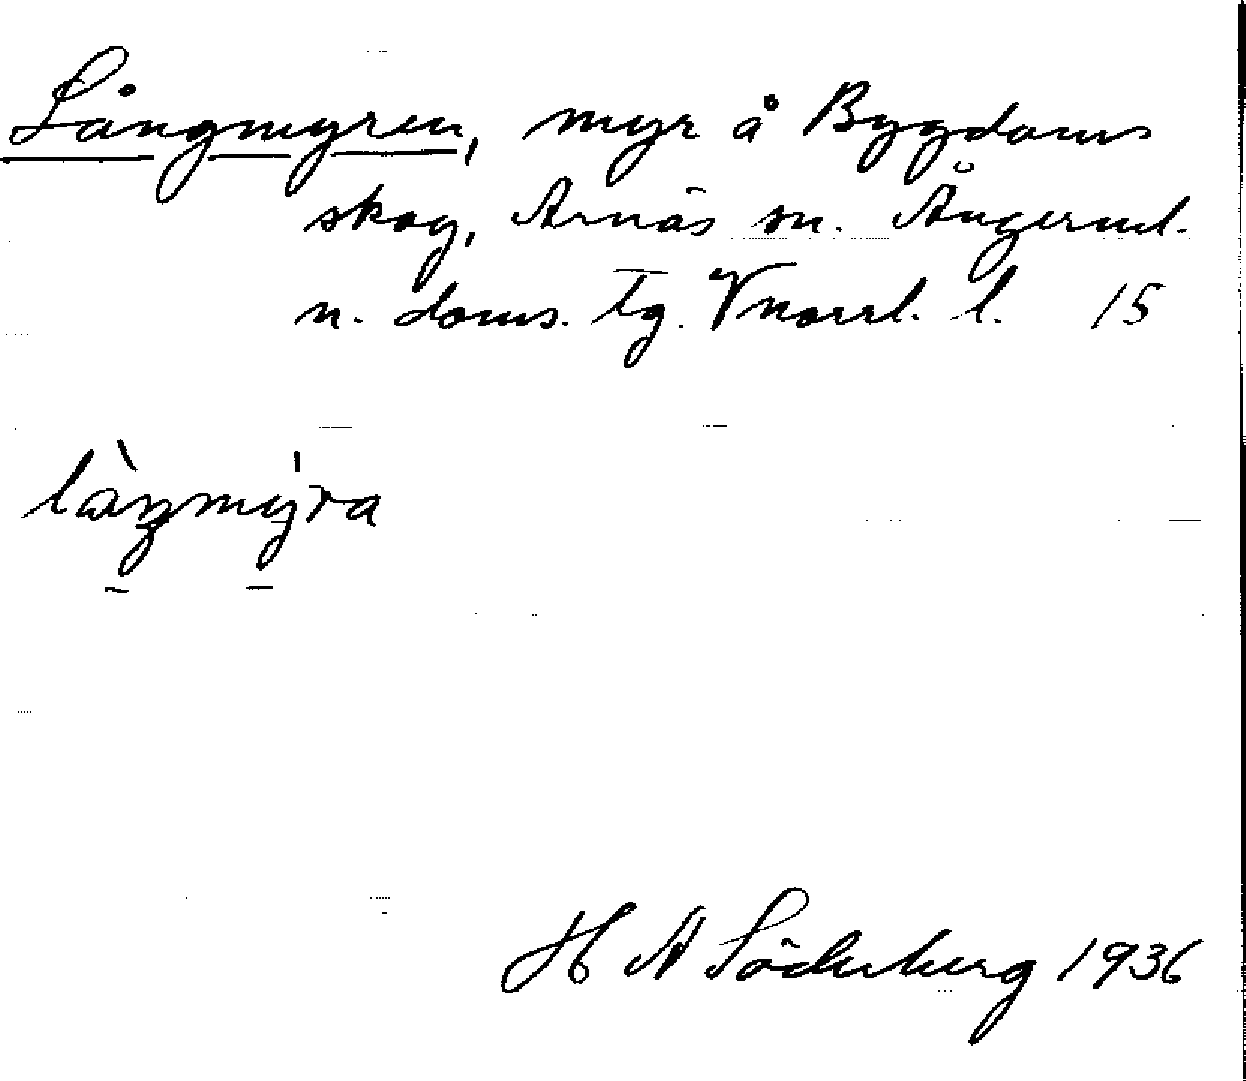 Långmyren, myr å Bygdoms
skog, Arnäs sn. Ångerml.
n. doms. tg. Vnorrl. l. 15
làŋmy̍ra
H A Söderberg 1936